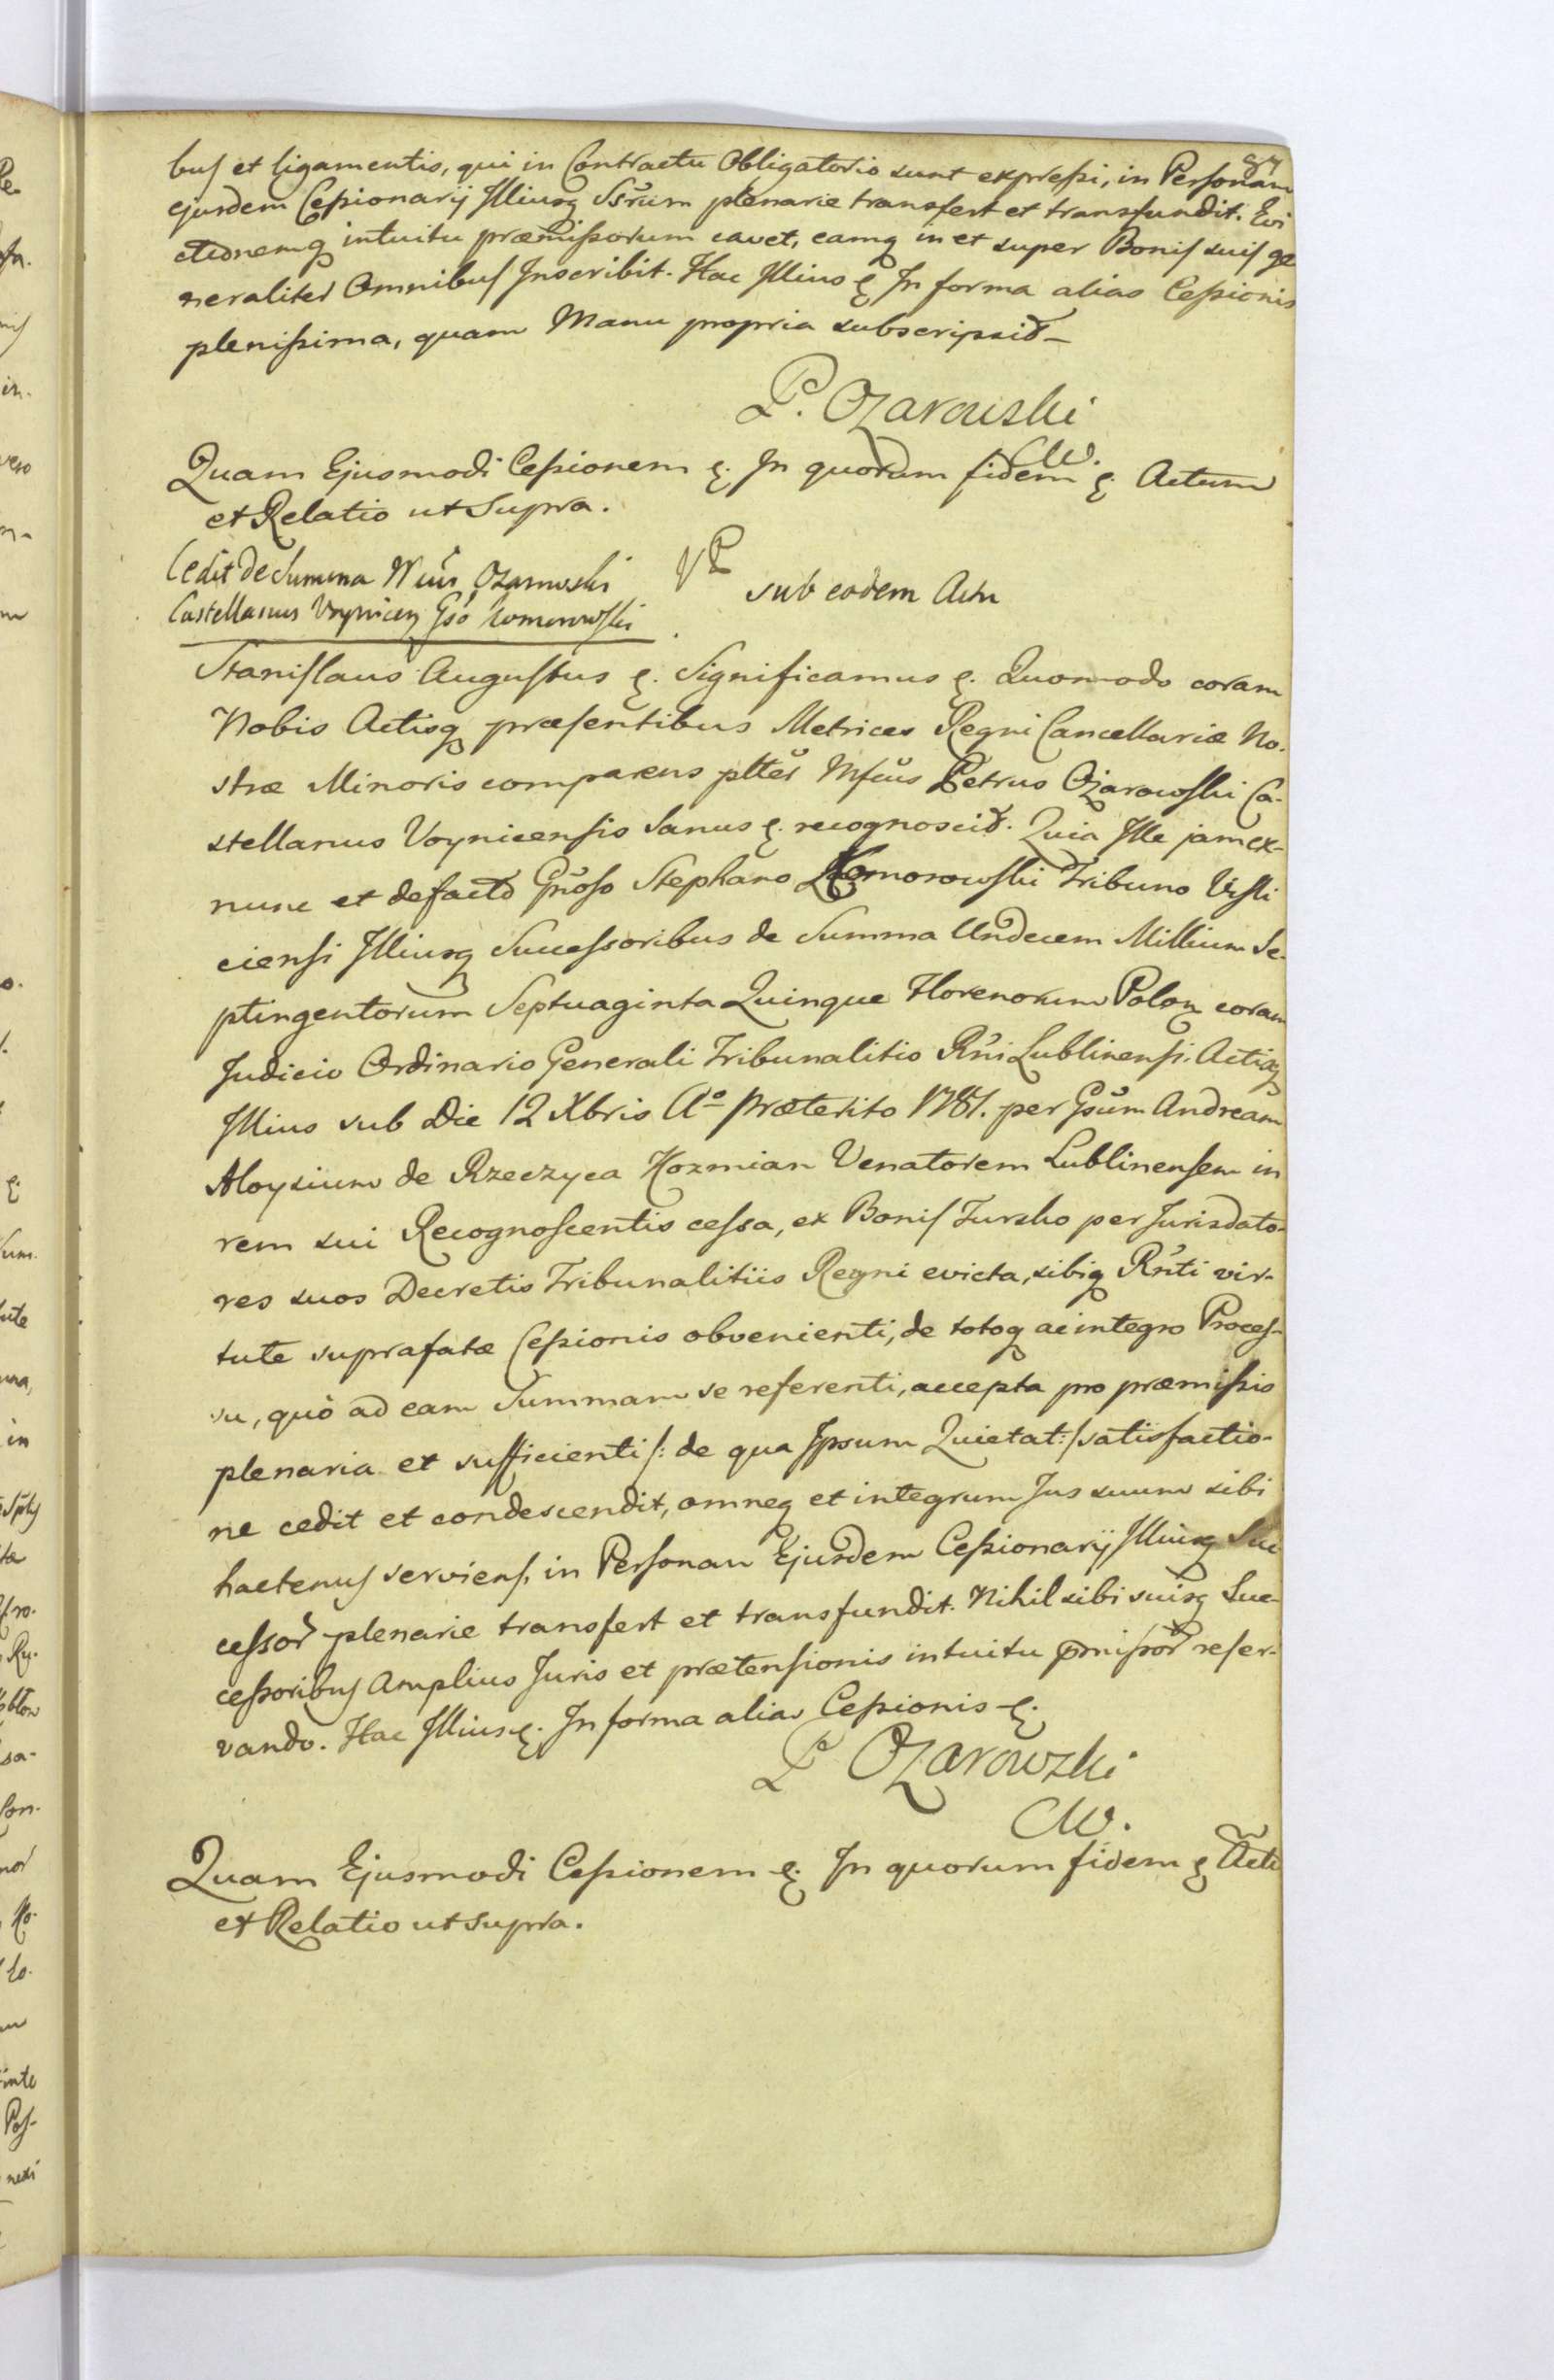 87
bus et ligamentis, qui in Contractu Obligatorio sunt expressi, in Personam
ejusdem Cessionarij Illiusq Ssrum plenarie transfert et transfundit. Evi
ctionemq intuitu præmissorum cavet, eamq in et super Bonis suis ge
neraliter Omnibus Inscribit. Hac Illius &. In forma alias Cessionis
plenissima, quam Manu propria subscripsit –
P. Ozarowski
CW.
Quam Ejusmodi Cessionem &. In quorum fidem &. Actum
et Relatio ut Supra.
Cedit de Summa Ozarowski
Castellanus Voynicen Gso Komorowski
sub eodem Actu
Stanislaus Augustus &. Significamus &. Quomodo coram
Nobis Actisq præsentibus Metrices Regni Cancellariæ No-
stræ Minoris comparens pltter Mfcus Petrus Ozarowski Ca-
stellanus Voynicensis Sanus &. recognoscit. Quia Ille jam ex-
nunc et defacto Gnoso Stephano Komorowski Tribuno Visli
ciensi Illiusq Successoribus de Summa Undecem Millium Se-
ptingentorum Septuaginta Quinque Florenorum Polon coram
Judicio Ordinario Generali Tribunalitio Rni Lublinensi. Actisq
Illius sub Die 12 Xbris Aº Præterito 1781. per Gsum Andream
Aloysium de Rzeczyca Kozmian Venatorem Lublinensem in
rem sui Recognoscentis cessa, ex Bonis Tursko per Jurisdato-
res suos Decretis Tribunalitiis Regni evicta, sibiq Rnti vir-
tute suprafatæ Cessionis obvenienti, de totoq ac integro Proces-
su, quò ad eam Summam se referenti, accepta pro præmissis
plenaria et sufficienti /: de qua Ipsum Quietat :/ satisfactio-
ne cedit et condescendit, omneq et integrum Jus suum sibi
hactenus serviens, in Personam Ejusdem Cessionarij Illiusq Suc
cessor plenarie transfert et transfundit. Nihil sibi suisq Suc-
cessoribus Amplius Juris et prætensionis intuitu pmissor reser-
vando. Hac Illius &. In forma alias Cessionis &.
P Ozarowski
CW.
Quam Ejusmodi Cessionem &. In quorum fidem & Actu
et Relatio ut Supra.